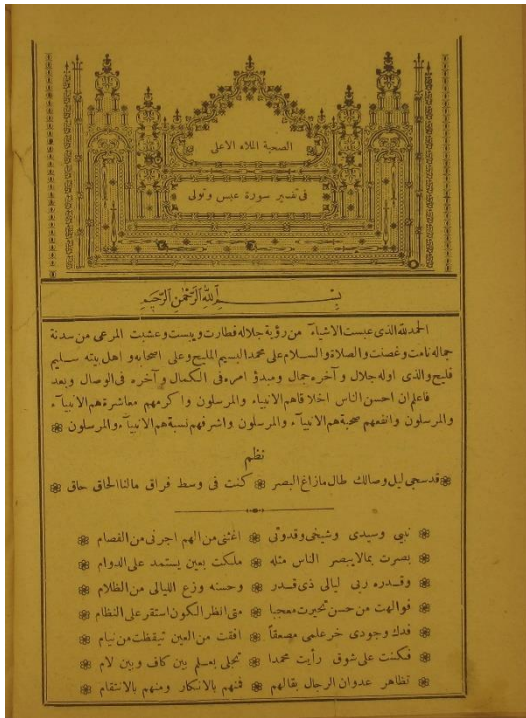 الصحبة الملاء الاعلى
فى تفسير سورة عبس وتولى
بسم الله الرحمن الرحيم
الحمد لله الذى عبست الاشياء من رؤية جلاله فطارت ويبست وعشبت المرعى من سدنة
جماله نامت وغصنت والصلاة والسلام على محمد البسيم المليح وعلى اصحابه و اهل بيته سليم
فليح والذى اوله جلال و آخره جمال ومبدؤ امره فى الكمال و آخره فى الوصال وبعد
فاعلم ان احسن الناس اخلاقا هم الانبياء والمرسلون واكرمهم معاشرة هم الانبياء
والمرسلون وانفعهم صحبة هم الانبياء والمرسلون واشرفهم نسبة هم الانبياء والمرسلون ❁
نظم
❁ قد سجى ليل وصالك طال مازاغ البصر ❁ كنت فى وسط فراق مالنا الحاق حاق ❁
❁ نبيى وسيدى وشيخى وقدوتى ❁ اغثنى من الهم اجرنى من الفصام ❁
❁ بصرت بمالا يبصر الناس مثله ❁ ملكت بعين يستمد على الدوام ❁
❁ وقدره ربى ليالى ذى قدر ❁ وحسنه وزع الليالى من الظلام ❁
❁ فوالهت من حسن تحيرت معجبا ❁ متى انظر الكون استقر على النظام ❁
❁ فدك وجودى خر علمى مصعقاً ❁ افقت من العين تيقظت من نيام ❁
❁ فكنت على شوق رأيت محمدا ❁ تجلى بعلم بين كاف وبين لام ❁
❁ تظاهر عدوان الرجال بقالهم ❁ فمنهم بالانكار ومنهم بالانتقام ❁